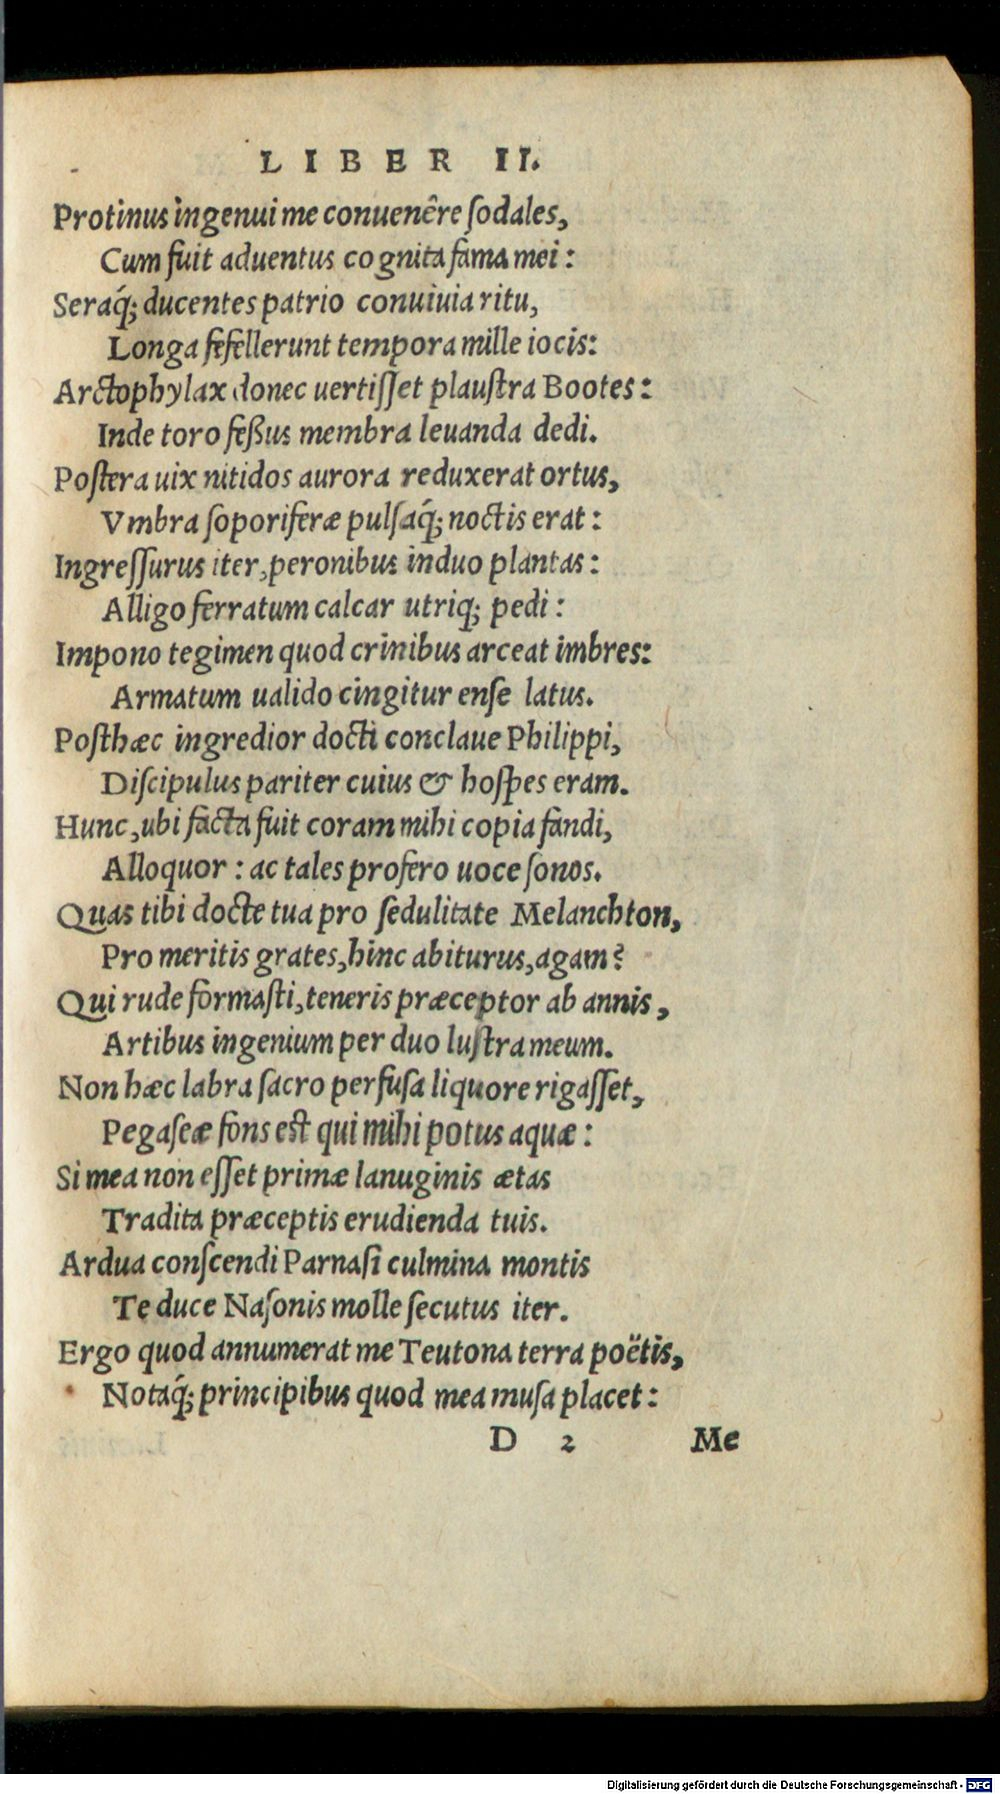 LIBER II.
Protinus ingenui me conuenêre ſodales,
Cum fuit aduentus cognita fama mei :
Seraq́; ducentes patrio conuiuia ritu,
Longa fefellerunt tempora mille iocis:
Arctophylax donec uertiſſet plauſtra Bootes :
Inde toro feßus membra leuanda dedi.
Poſtera uix nitidos aurora reduxerat ortus,
Vmbra ſoporiferæ pulſaq́; noctis erat :
Ingreſſurus iter, peronibus induo plantas :
Alligo ferratum calcar utriq; pedi :
Impono tegimen quod crinibus arceat imbres:
Armatum ualido cingitur enſe latus.
Poſthæc ingredior docti conclaue Philippi,
Diſcipulus pariter cuius & hoſpes eram.
Hunc, ubi facta fuit coram mihi copia fandi,
Alloquor : ac tales profero uoce ſonos.
Quas tibi docte tua pro ſedulitate Melanchton,
Pro meritis grates, hinc abiturus, agam?
Qui rude formaſti, teneris præceptor ab annis,
Artibus ingenium per duo luſtra meum.
Non hæc labra ſacro perfuſa liquore rigaſſet,
Pegaſeæ fons est qui mihi potus aquæ :
Si mea non eſſet primæ lanuginis ætas
Tradita præceptis erudienda tuis.
Ardua conſcendi Parnaſi culmina montis
Te duce Naſonis molle ſecutus iter.
Ergo quod annumerat me Teutona terra poëtis,
Notaq́; principibus quod mea muſa placet :
D 2 Me
Digitalisierung gefördert durch die Deutsche Forschungsgemeinschaft - DFG